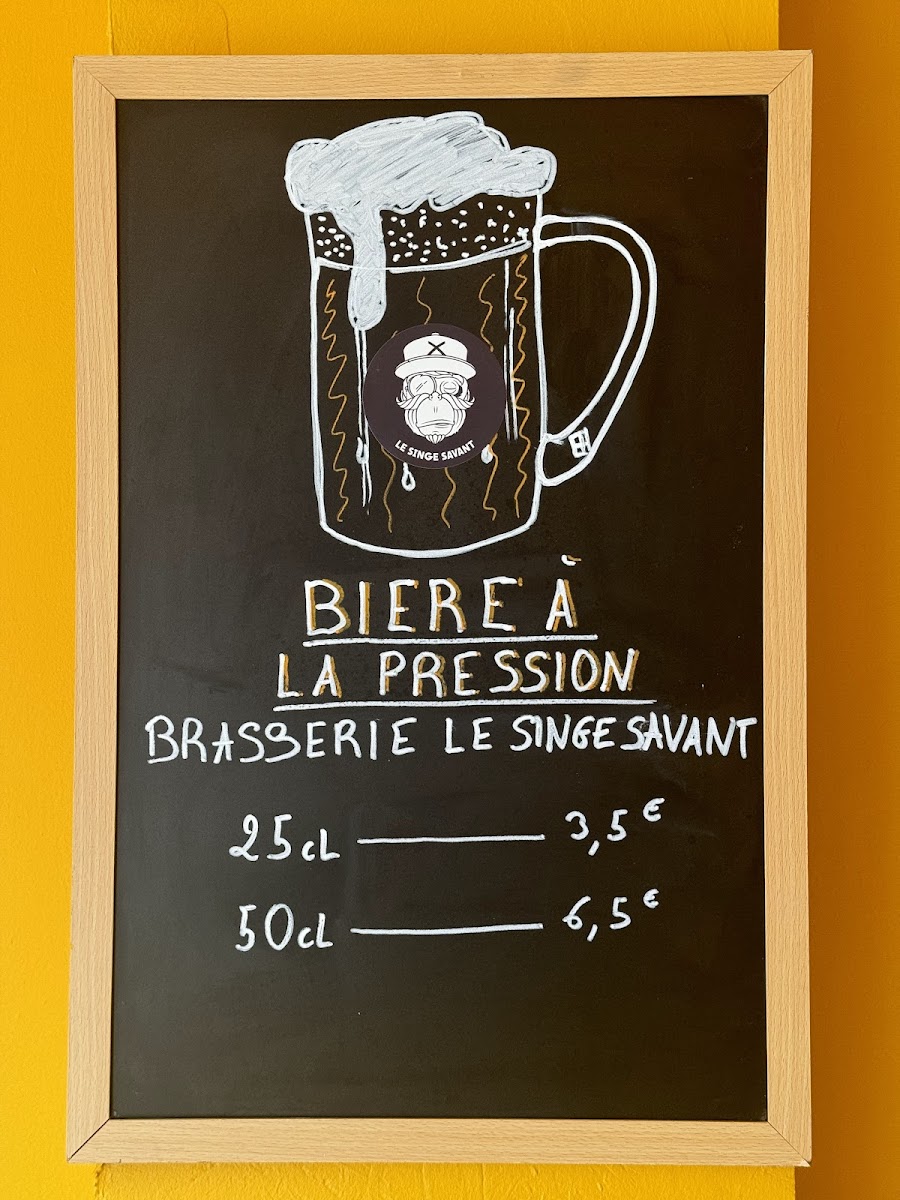 X
LE SINGE SAVANT
BIERE À
LA PRESSION
BRASSERIE LE SINGE SAVANT
25cL 3,5€
50cL 6,5€